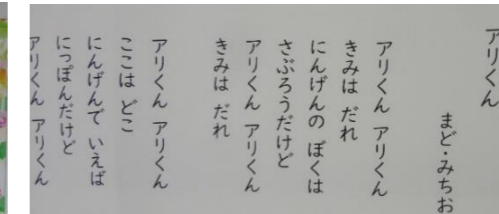 アリくん
まど・みちお
アリくん アリくん
きみは だれ
にんげんの ぼくは
さぶろうだけど
アリくん アリくん
きみは だれ
アリくん アリくん
ここは どこ
にんげんで いえば
にっぽんだけど
アリくん アリくん